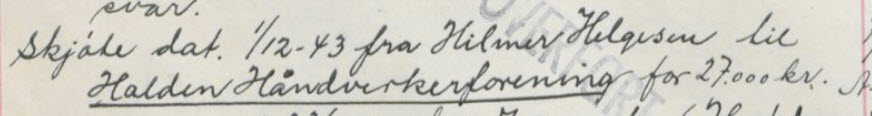 svar.
Skjøte dat. 1/12-43 fra Hilmer Helgesen til
Halden Håndverkerforening for 27.000 kr.
OVERFØRT